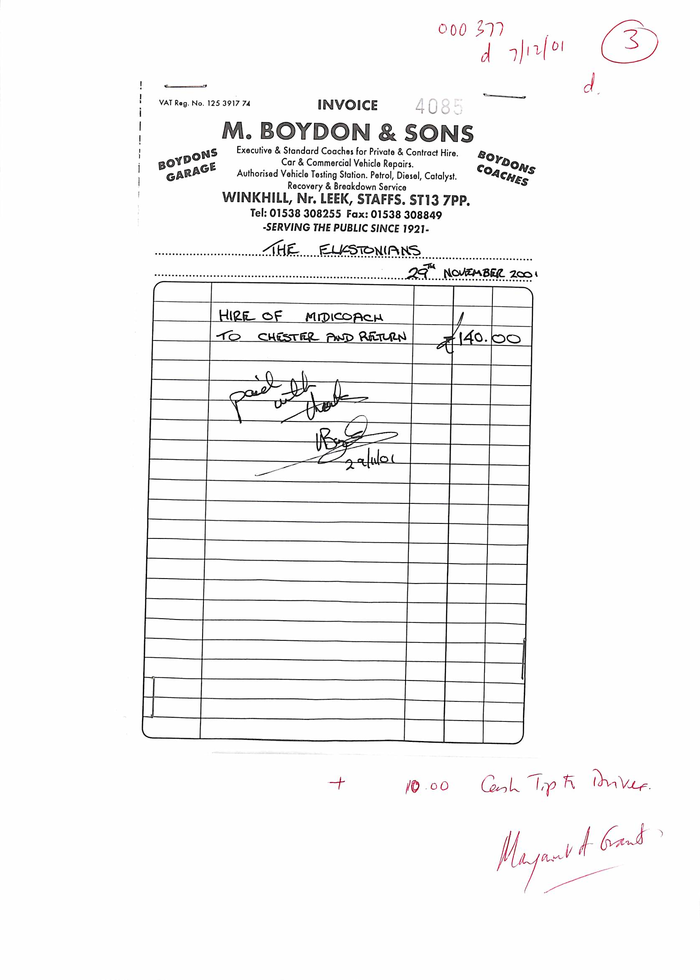 000 377
d 7/12/01
3
d.
VAT Reg. No. 125 3917 74
INVOICE 4085
M. BOYDON & SONS
BOYDONS GARAGE
Executive & Standard Coaches for Private & Contract Hire.
Car & Commercial Vehicle Repairs.
Authorised Vehicle Testing Station. Petrol, Diesel, Catalyst.
Recovery & Breakdown Service
BOYDONS COACHES
WINKHILL, Nr. LEEK, STAFFS. ST13 7PP.
Tel: 01538 308255 Fax: 01538 308849
-SERVING THE PUBLIC SINCE 1921-
THE ELKSTONIANS
29TH NOVEMBER 2001
HIRE OF MIDICOACH
TO CHESTER AND RETURN £140.00
paid
with
thanks
29/11/01
+ 10.00 Cash Tip to Driver.
Margaret A Grant